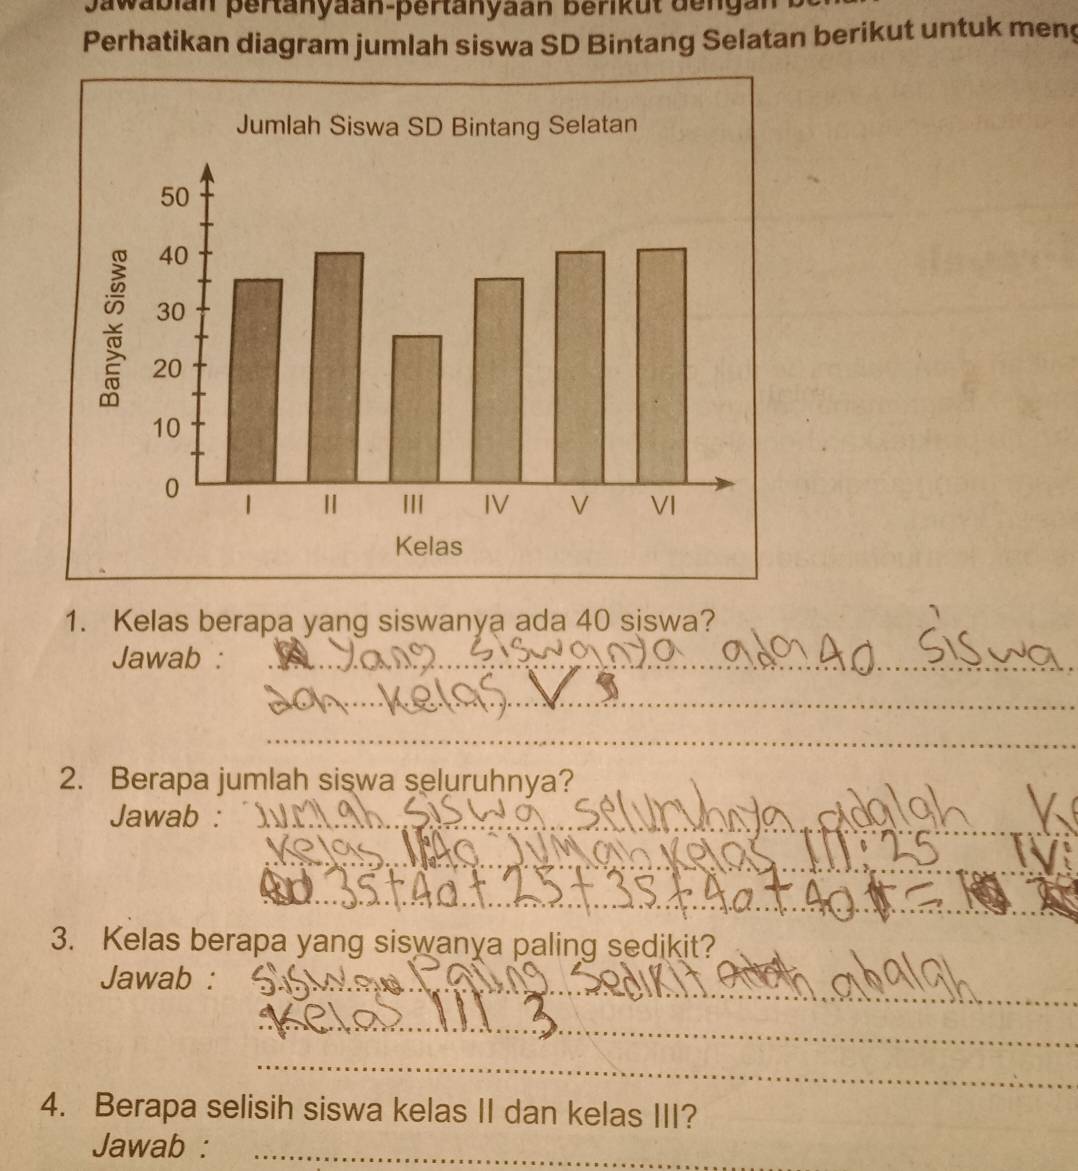 Jawablah pertanyaan-pertanyaan berikut dengan
Perhatikan diagram jumlah siswa SD Bintang Selatan berikut untuk meng
Jumlah Siswa SD Bintang Selatan
Banyak Siswa
50
40
30
20
10
0
I II III IV V VI
Kelas
1. Kelas berapa yang siswanya ada 40 siswa?
Jawab : Yang siswanya ada 40 siswa
kelas V
2. Berapa jumlah siswa seluruhnya?
Jawab : Jumlah siswa seluruhnya adalah Ke
Kelas II:40 Jumlah kelas III:25 IV:
35+40+25+35+40+40 =
3. Kelas berapa yang siswanya paling sedikit?
Jawab : Siswa Paling Sedikit abalah
Kelas III 3
4. Berapa selisih siswa kelas II dan kelas III?
Jawab :